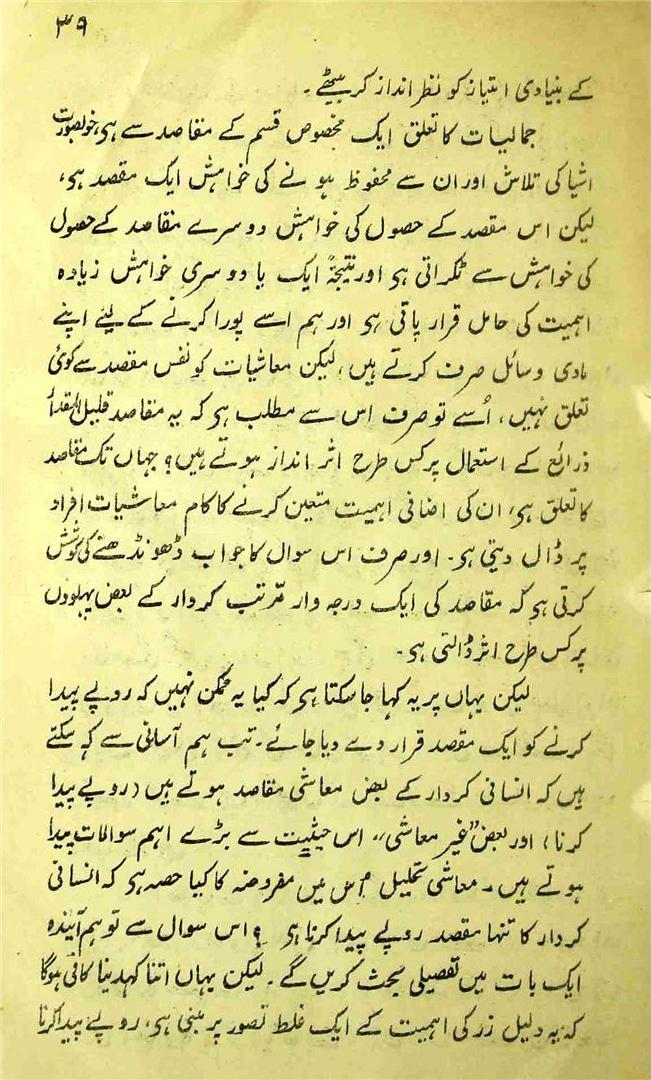 ۳۹
کے بنیادی امتیاز کو نظر انداز کر بیٹھے۔
جمالیات کا تعلق ایک مخصوص قسم کے مقاصد سے ہی، خوبصورت
اشیا کی تلاش اور ان سے محفوظ ہونے کی خواہش ایک مقصد ہی،
لیکن اس مقصد کے حصول کی خواہش دوسرے مقاصد کے حصول
کی خواہش سے ٹکراتی ہی اور نتیجۃً ایک یا دوسری خواہش زیادہ
اہمیت کی حامل قرار پاتی ہی اور ہم اسے پورا کرنے کے لیئے اپنے
مادی وسائل صرف کرتے ہیں، لیکن معاشیات کو نفس مقصد سے کوئی
تعلق نہیں، اُسے تو صرف اس سے مطلب ہی کہ یہ مقاصد قلیل المقدار
ذرائع کے استعمال پر کس طرح اثر انداز ہوتے ہیں؟ جہاں تک مقاصد
کا تعلق ہی، ان کی اضافی اہمیت متعین کرنے کا کام معاشیات افراد
پر ڈال دیتی ہی۔ اور صرف اس سوال کا جواب ڈھونڈھنے کی کوشش
کرتی ہی کہ مقاصد کی ایک درجہ وار مرّتب کردار کے بعض پہلوؤں
پر کس طرح اثر ڈالتی ہی۔
لیکن یہاں پر یہ کہا جا سکتا ہی کہ کیا یہ ممکن نہیں کہ روپے پیدا
کرنے کو ایک مقصد قرار دے دیا جائے۔ تب ہم آسانی سے کہ سکتے
ہیں کہ انسانی کردار کے بعض معاشی مقاصد ہوتے ہیں (روپے پیدا
کرنا) اور بعض "غیر معاشی"، اس حیثیت سے بڑے اہم سوالات پیدا
ہوتے ہیں۔ معاشی تحلیل میں اس مفروضہ کا کیا حصہ ہی کہ انسانی
کردار کا تنہا مقصد روپے پیدا کرنا ہی؟ اس سوال سے تو ہم آیندہ
ایک بات میں تفصیلی بحث کریں گے۔ لیکن یہاں اتنا کہدینا کافی ہوگا
کہ یہ دلیل زر کی اہمیت کے ایک غلط تصور پر مبنی ہی، روپے پیدا کرنا